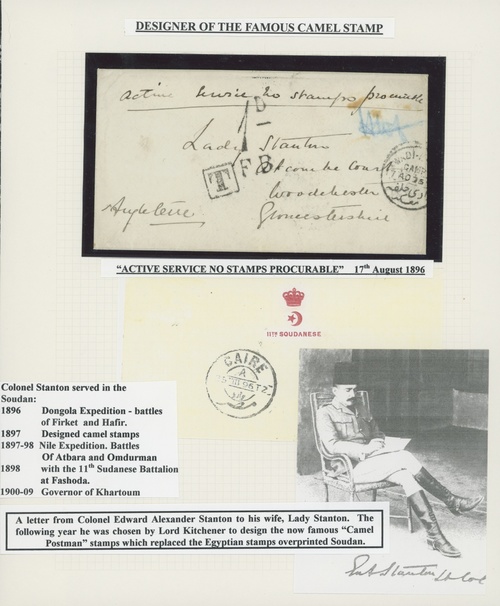 DESIGNER OF THE FAMOUS CAMEL STAMP
Active Service No stamps procurable
1D
F.B.
T
Lady Stanton
Court
Woodchester
Gloucestershire
Angleterre
CAMP
"ACTIVE SERVICE NO STAMPS PROCURABLE" 17th August 1896
11TH SOUDANESE
CAIRE
A
Colonel Stanton served in the
Soudan:
1896 Dongola Expedition - battles
of Firket and Hafir.
1897 Designed camel stamps
1897-98 Nile Expedition. Battles
Of Atbara and Omdurman
1898 with the 11th Sudanese Battalion
at Fashoda.
1900-09 Governor of Khartoum
A letter from Colonel Edward Alexander Stanton to his wife, Lady Stanton. The
following year he was chosen by Lord Kitchener to design the now famous "Camel
Postman" stamps which replaced the Egyptian stamps overprinted Soudan.
Stanton Lt Col